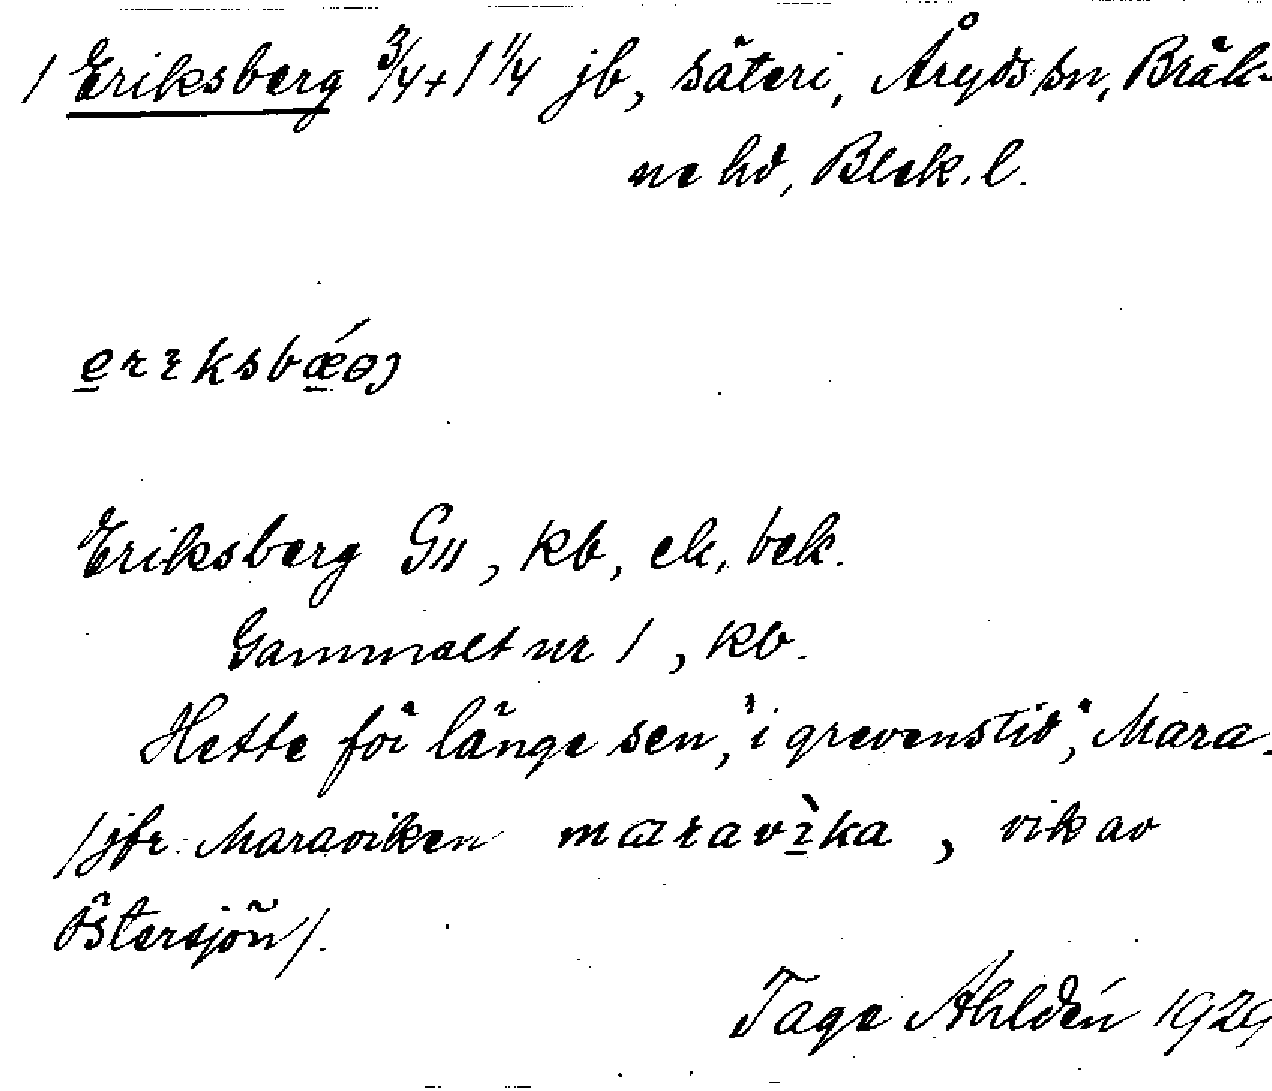 1 Eriksberg 3/4 + 1 1/4 jb, säteri, Åryds sn, Bräk-
ne hd, Blek. l.
Eriksberg G11, kb, ek, bek.
Gammalt nr 1, kb.
Hette för länge sen, "i grevens tid", Mara.
/jfr Maraviken maravika, vik av
Östersjön/.
Tage Ahldén 1929